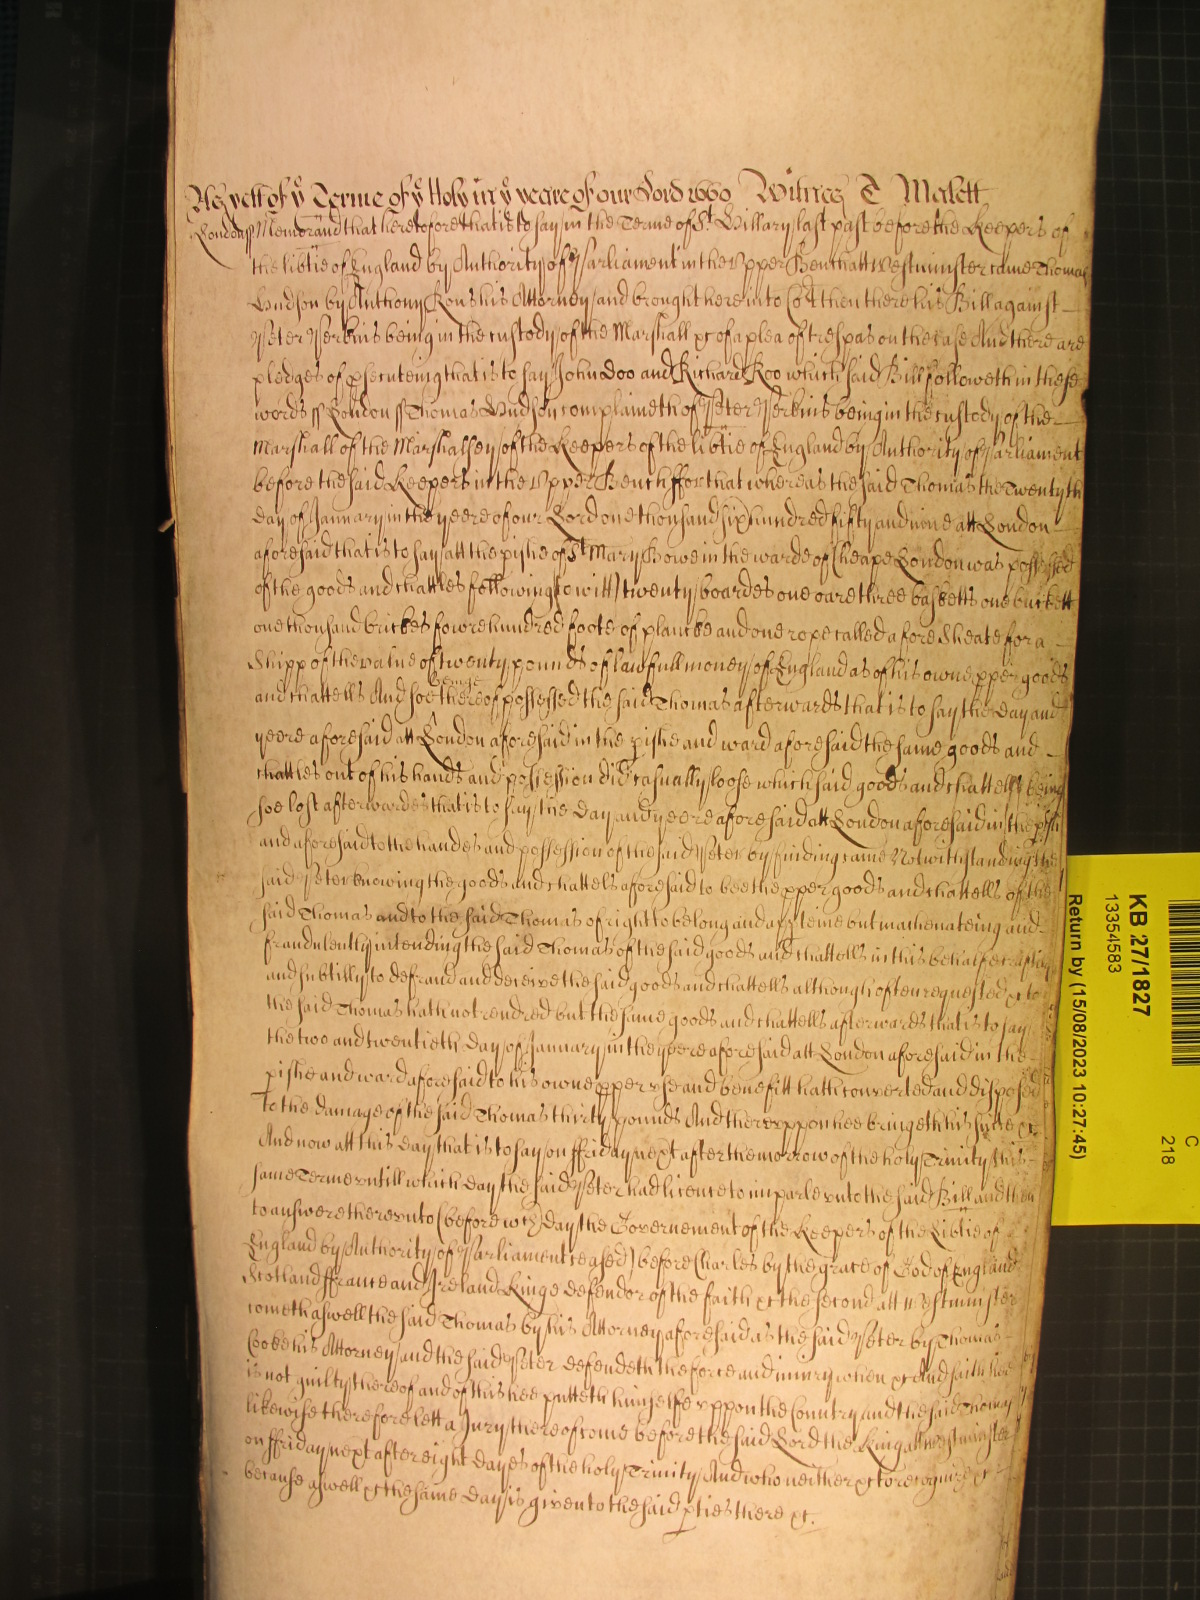 As yett of ye Terme of ye Holy in ye yeare of our Lord 1660 Witnes T Malett
London ss Memorand that heretofore that is to say in the Terme of St Hillary last past before the Keepers of
the lib̃tie of England by Authority of Parliament in the Upper Bench att Westminster came Thomas
Hudson by Anthony Rous his Attorney and brought here into Co͠rt then there his Bill against
Peter Perkins being in the custody of the Marshall &c of a plea of trespas on the case And there are
pledges of p̱secuteing that is to say John Doo and Richard Roo which said Bill followeth in these
words ss London ss Thomas Hudson complaineth of Peter Perkins being in the custody of the
Marshall of the Marshalsey of the Keepers of the lib̃tie of England by Authority of Parliament
before the said Keepers in the Upper Bench ffor that whereas the said Thomas the Twentyth
day of January in the yeere of our Lord one thousand six hundred fifty and nine att London
aforesaid that is to say att the p̱ishe of St Mary Bowe in the warde of Cheape London was possessed
of the goods and chattles following to witt twenty boardes one oare three basketts one buckett
one thousand brickes fowre hundred foote of plancke and one rope called a fore Sheate for a
Shipp of the value of twenty pounds of lawfull money of England as of his owne p̱per goods
and chattells And soe thereof being possessed the said Thomas afterwards that is to say the day and
yeere aforesaid att London aforesaid in the p̱ishe and ward aforesaid the same goods and
chattles out of his hands and possession did casually loose which said goods and chattells being
soe lost afterwardes that is to say the day and yeere aforesaid att London aforesaid in the p̱ish
and aforesaid to the handes and possession of the said Peter by finding came Notwithstanding the
said Peter knowing the goods and chattels aforesaid to bee the p̱per goods and chattells of the
said Thomas and to the said Thomas of right to belong and app̱teine but machenateing and
fraudulently intending the said Thomas of the said goods and chattells in this behalfe craftily
and subtilly to defraud and deceive the said goods and chattells although often requested &c to
the said Thomas hath not rendred but the same goods and chattells afterwards that is to say
the two and twentieth day of January in the yeere aforesaid att London aforesaid in the
p̱ishe and ward aforesaid to his owne p̱per use and benefitt hath converted and disposed
To the damage of the said Thomas thirty pounds And thereuppon hee bringeth his suite &c
And now att this day that is to say on ffriday next after the morrow of the holy Trinity this
same Terme untill which day the said Peter had licence to imparle unto the said Bill and then
to answere thereunto (before wch day the Governement of the Keepers of the Lib̃tie of
England by Authority of Parliament ceased) before Charles by the grace of God of England
Scotland ffrance and Ireland Kinge defendor of the faith &c the second att Westminster
cometh aswell the said Thomas by his Attorney aforesaid as the said Peter by Thomas
Cooke his Attorney and the said Peter defendeth the force and iniury when &c And saith hee
is not guilty thereof and of this hee putteth himselfe uppon the Country and the said Thomas
likewise therefore lett a Jury thereof come before the said Lord the King att Westminster
on ffriday next after eight dayes of the holy Trinity And who neither &c to recognize &c
because aswell &c the same day is given to the said p̱ties there &c.
KB 27/1827
13354583
Return by (15/08/2023 10:27:45)
C
218